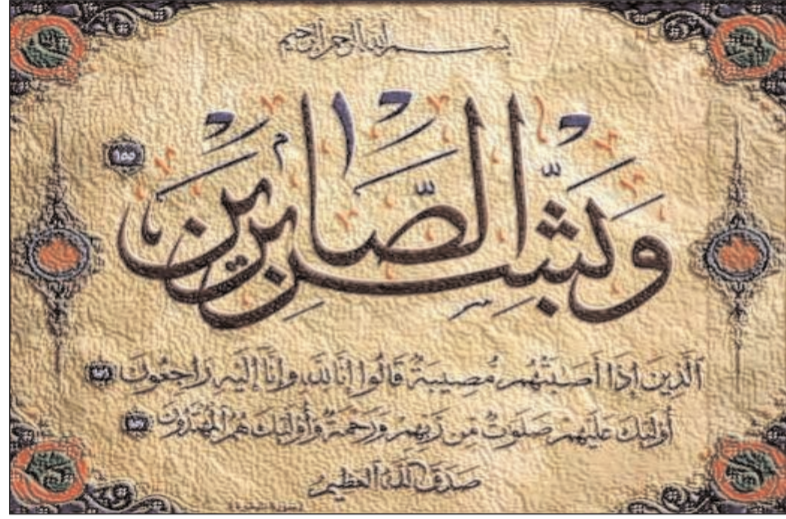 بسم الله الرحمن الرحيم
وَبَشِّرِ الصَّابِرِينَ ١٥٥
ٱلَّذِينَ إِذَآ أَصَـٰبَتْهُم مُّصِيبَةٌ قَالُوٓا۟ إِنَّا لِلَّهِ وَإِنَّآ إِلَيْهِ رَٰجِعُونَ ١٥٦
أُو۟لَـٰٓئِكَ عَلَيْهِمْ صَلَوَٰتٌ مِّن رَّبِّهِمْ وَرَحْمَةٌ وَأُو۟لَـٰٓئِكَ هُمُ ٱلْمُهْتَدُونَ ١٥٧
صَدَقَ ٱللَّهُ ٱلْعَظِيمُ
سورة البقرة